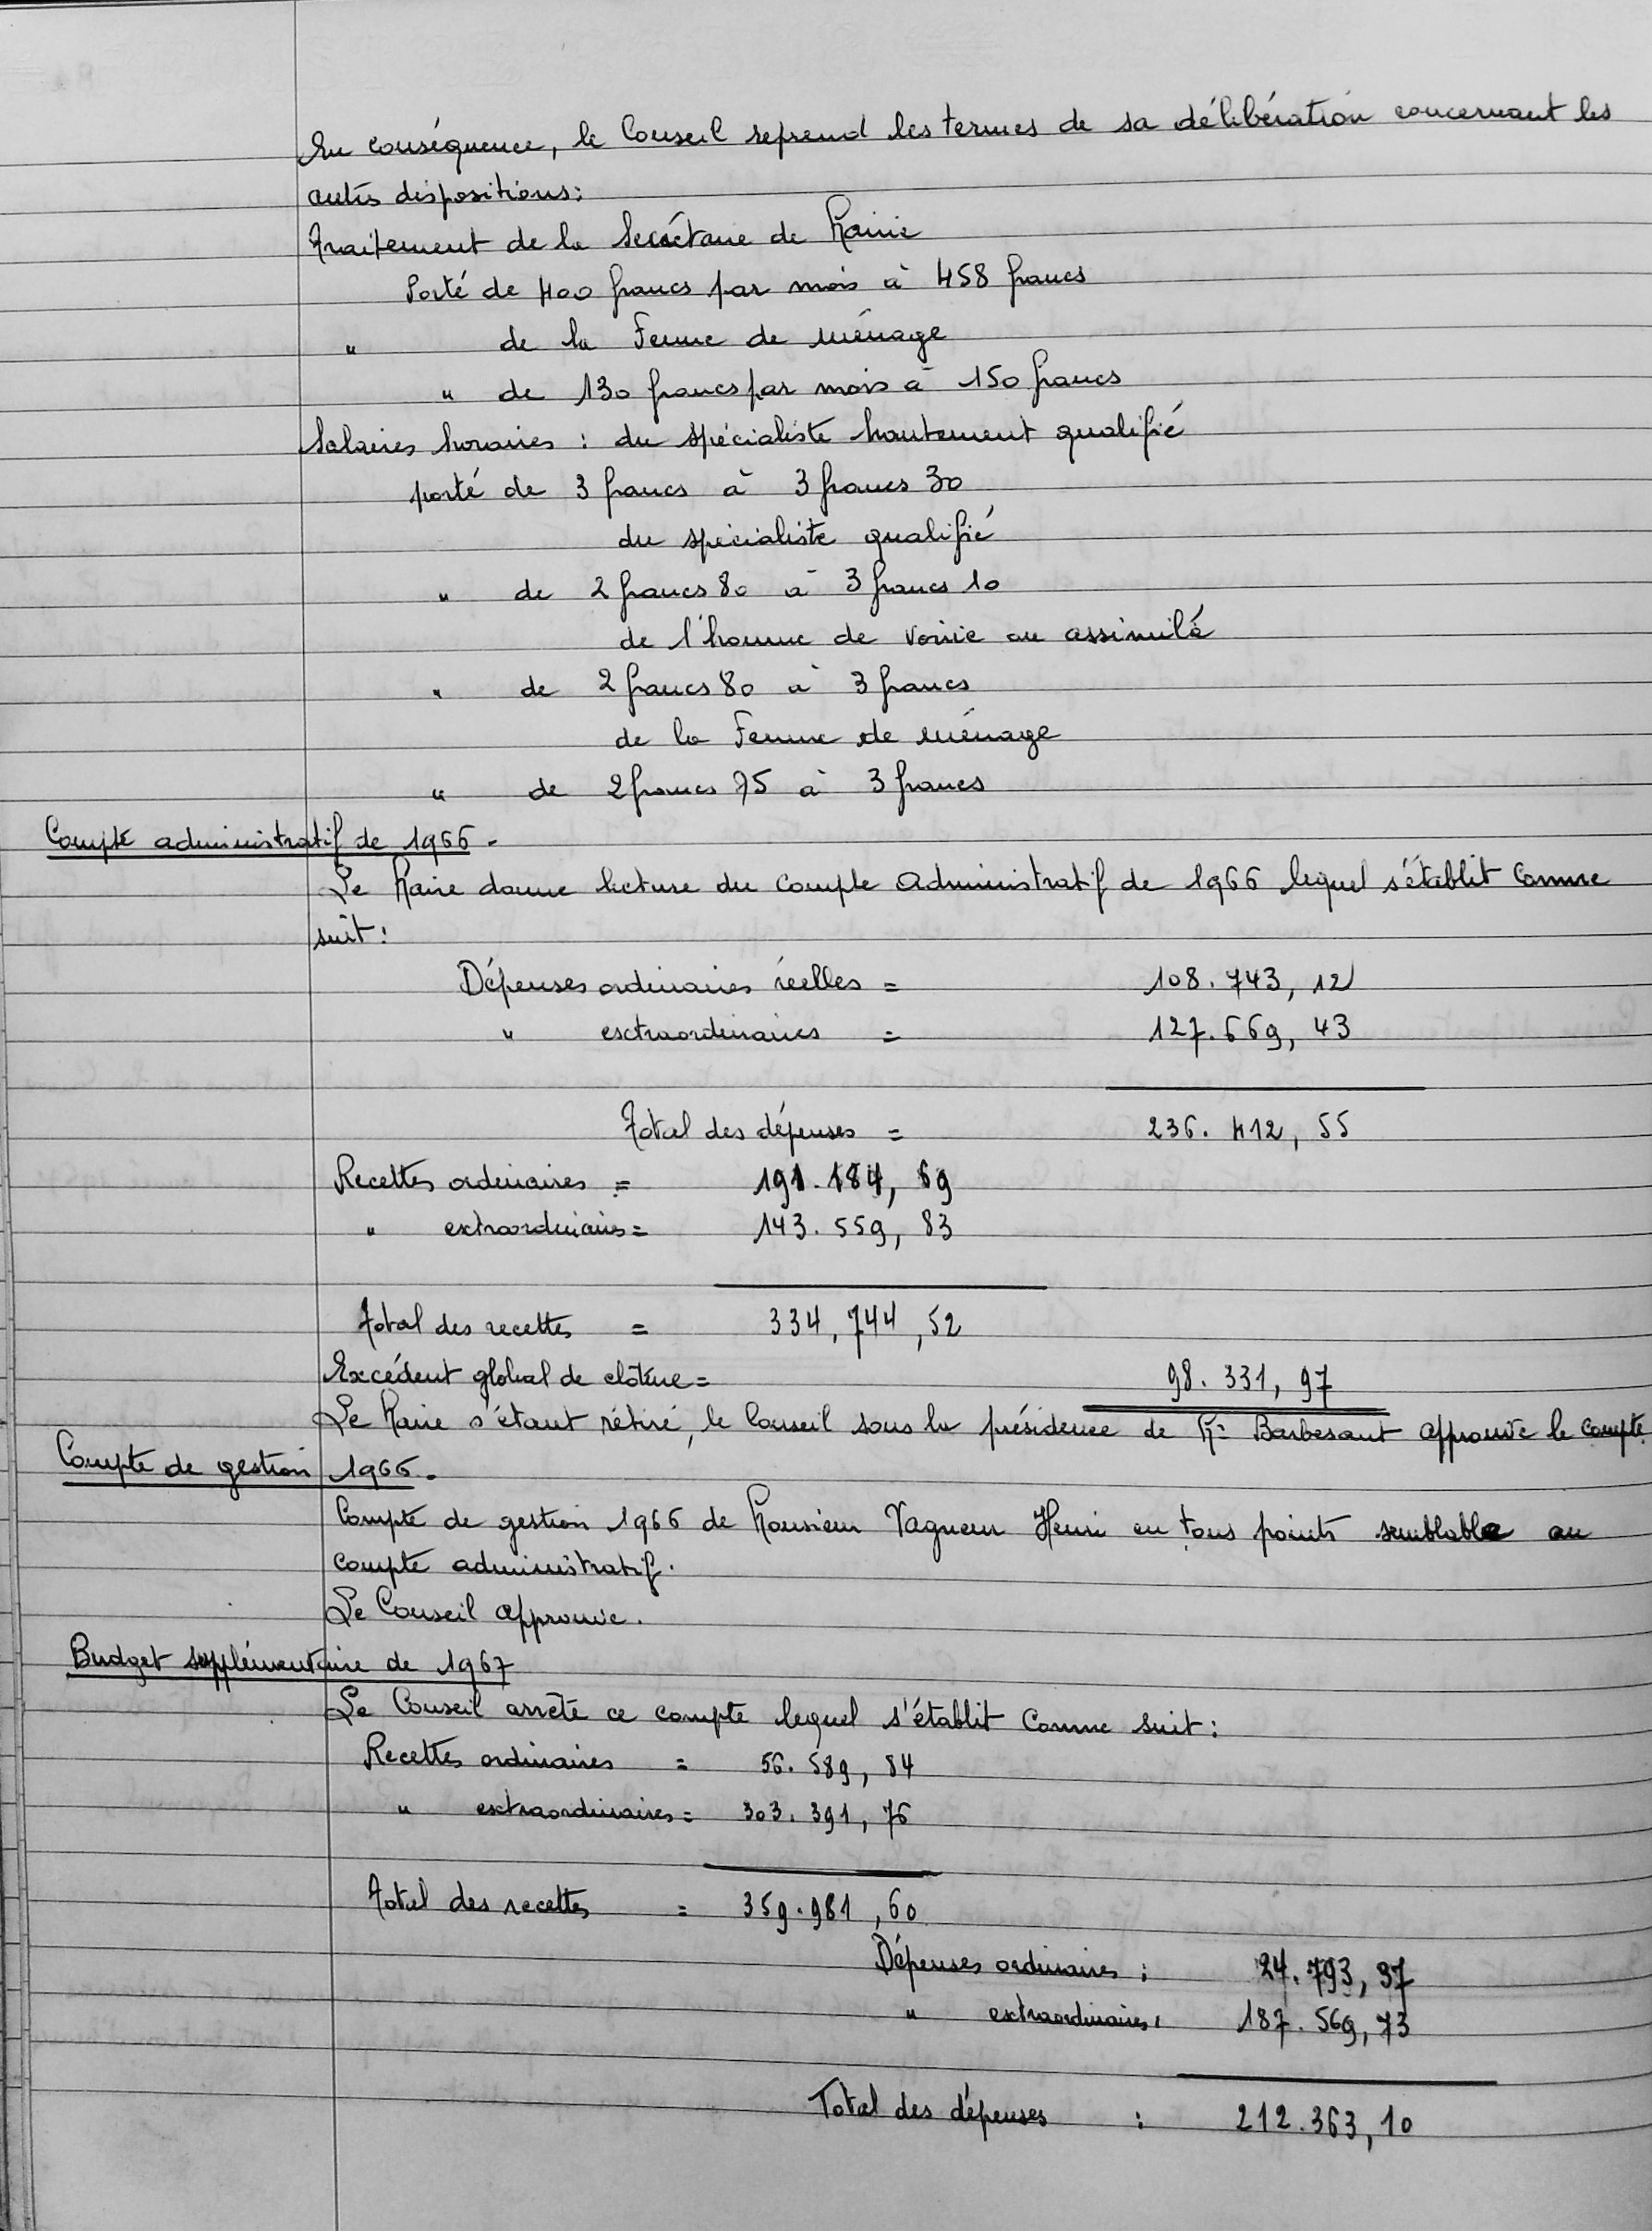 En conséquence, le Conseil reprend les termes de sa délibération concernant les
autres dispositions :
Traitement de la Secrétaire de Mairie
Porté de 400 francs par mois à 458 francs
" de la Femme de ménage
" de 130 francs par mois à 150 francs
Salaires horaires : du spécialiste hautement qualifié
porté de 3 francs à 3 francs 30
du spécialiste qualifié
" de 2 francs 80 à 3 francs 10
de l'homme de voirie ou assimilé
" de 2 francs 80 à 3 francs
de la Femme de ménage
" de 2 francs 75 à 3 francs
Compte administratif de 1966 -
Le Maire donne lecture du compte Administratif de 1966 lequel s'établit comme
suit :
Dépenses ordinaires réelles = 108.743,12
" extraordinaires = 127.669,43
Total des dépenses = 236.412,55
Recettes ordinaires = 191.184,69
" extraordinaires = 143.559,83
Total des recettes = 334,744,52
Excédent global de clôture = 98.331,97
Le Maire s'étant rétiré, le Conseil sous la présidence de Mr Barbesant approuve le compte
Compte de gestion 1966.
Compte de gestion 1966 de Monsieur Vagneur Henri en tous points semblable au
compte administratif.
Le Conseil approuve.
Budget supplémentaire de 1967
Le Conseil arrête ce compte lequel s'établit comme suit :
Recettes ordinaires = 56.589,84
" extraordinaires = 303.391,76
Total des recettes = 359.981,60
Dépenses ordinaires : 24.793,37
" extraordinaires : 187.569,73
Total des dépenses : 212.363,10